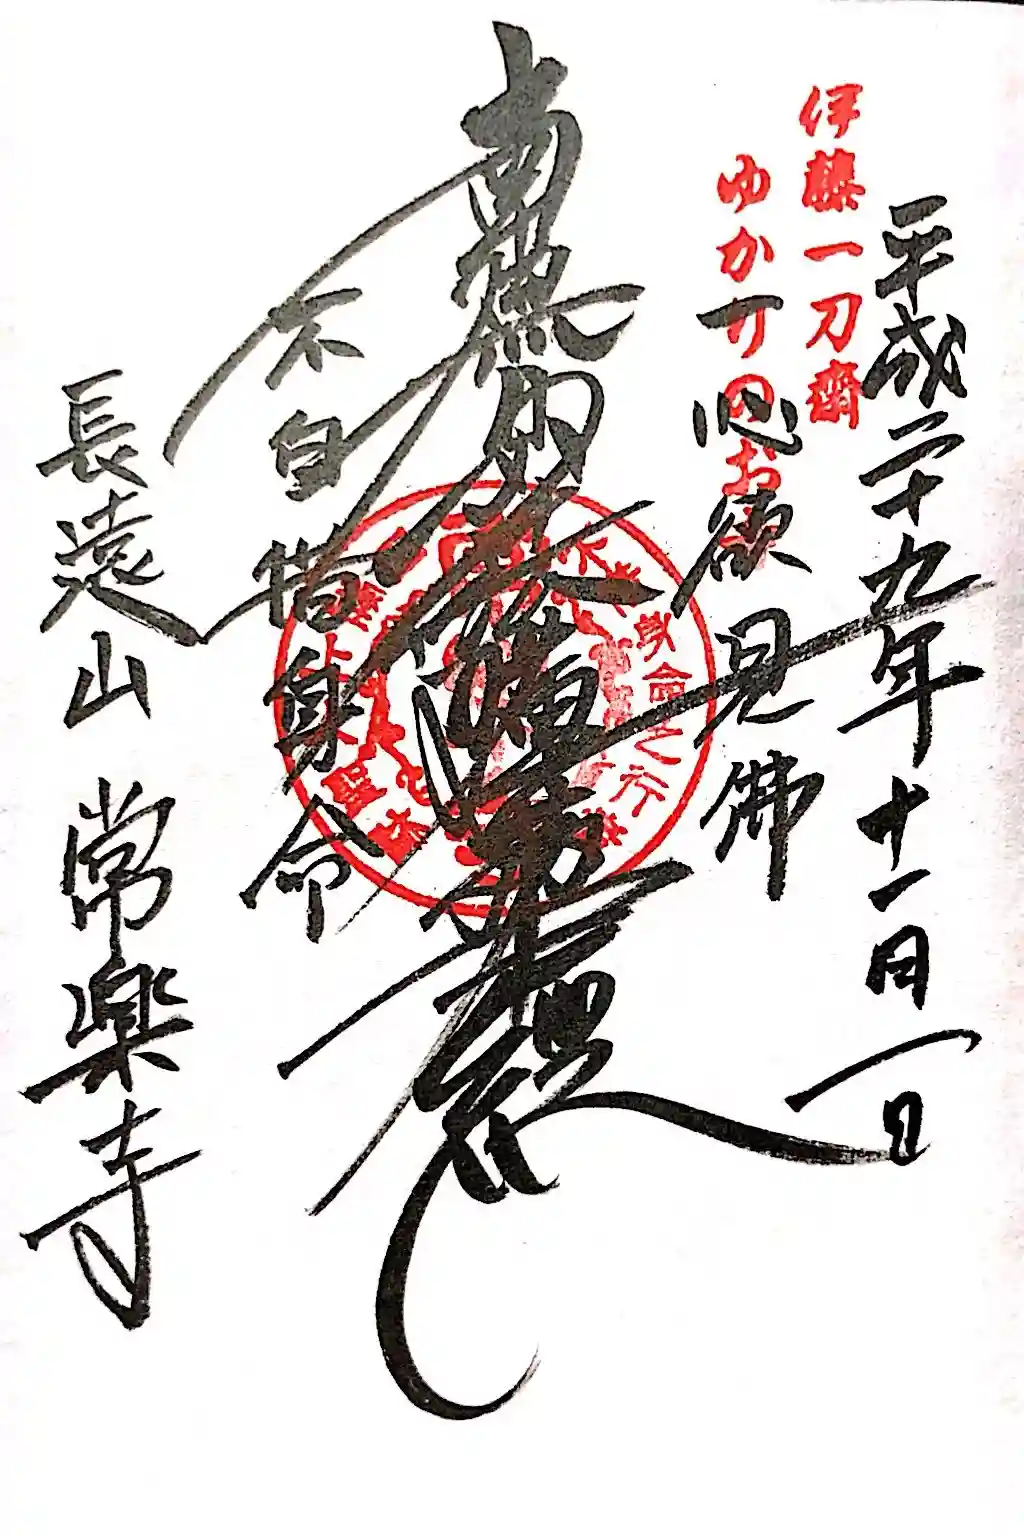 平成二十九年十一月一日
伊藤一刀齋
ゆかりのお寺
一心欲見佛
南無妙法蓮華経
不自惜身命
長遠山 常楽寺